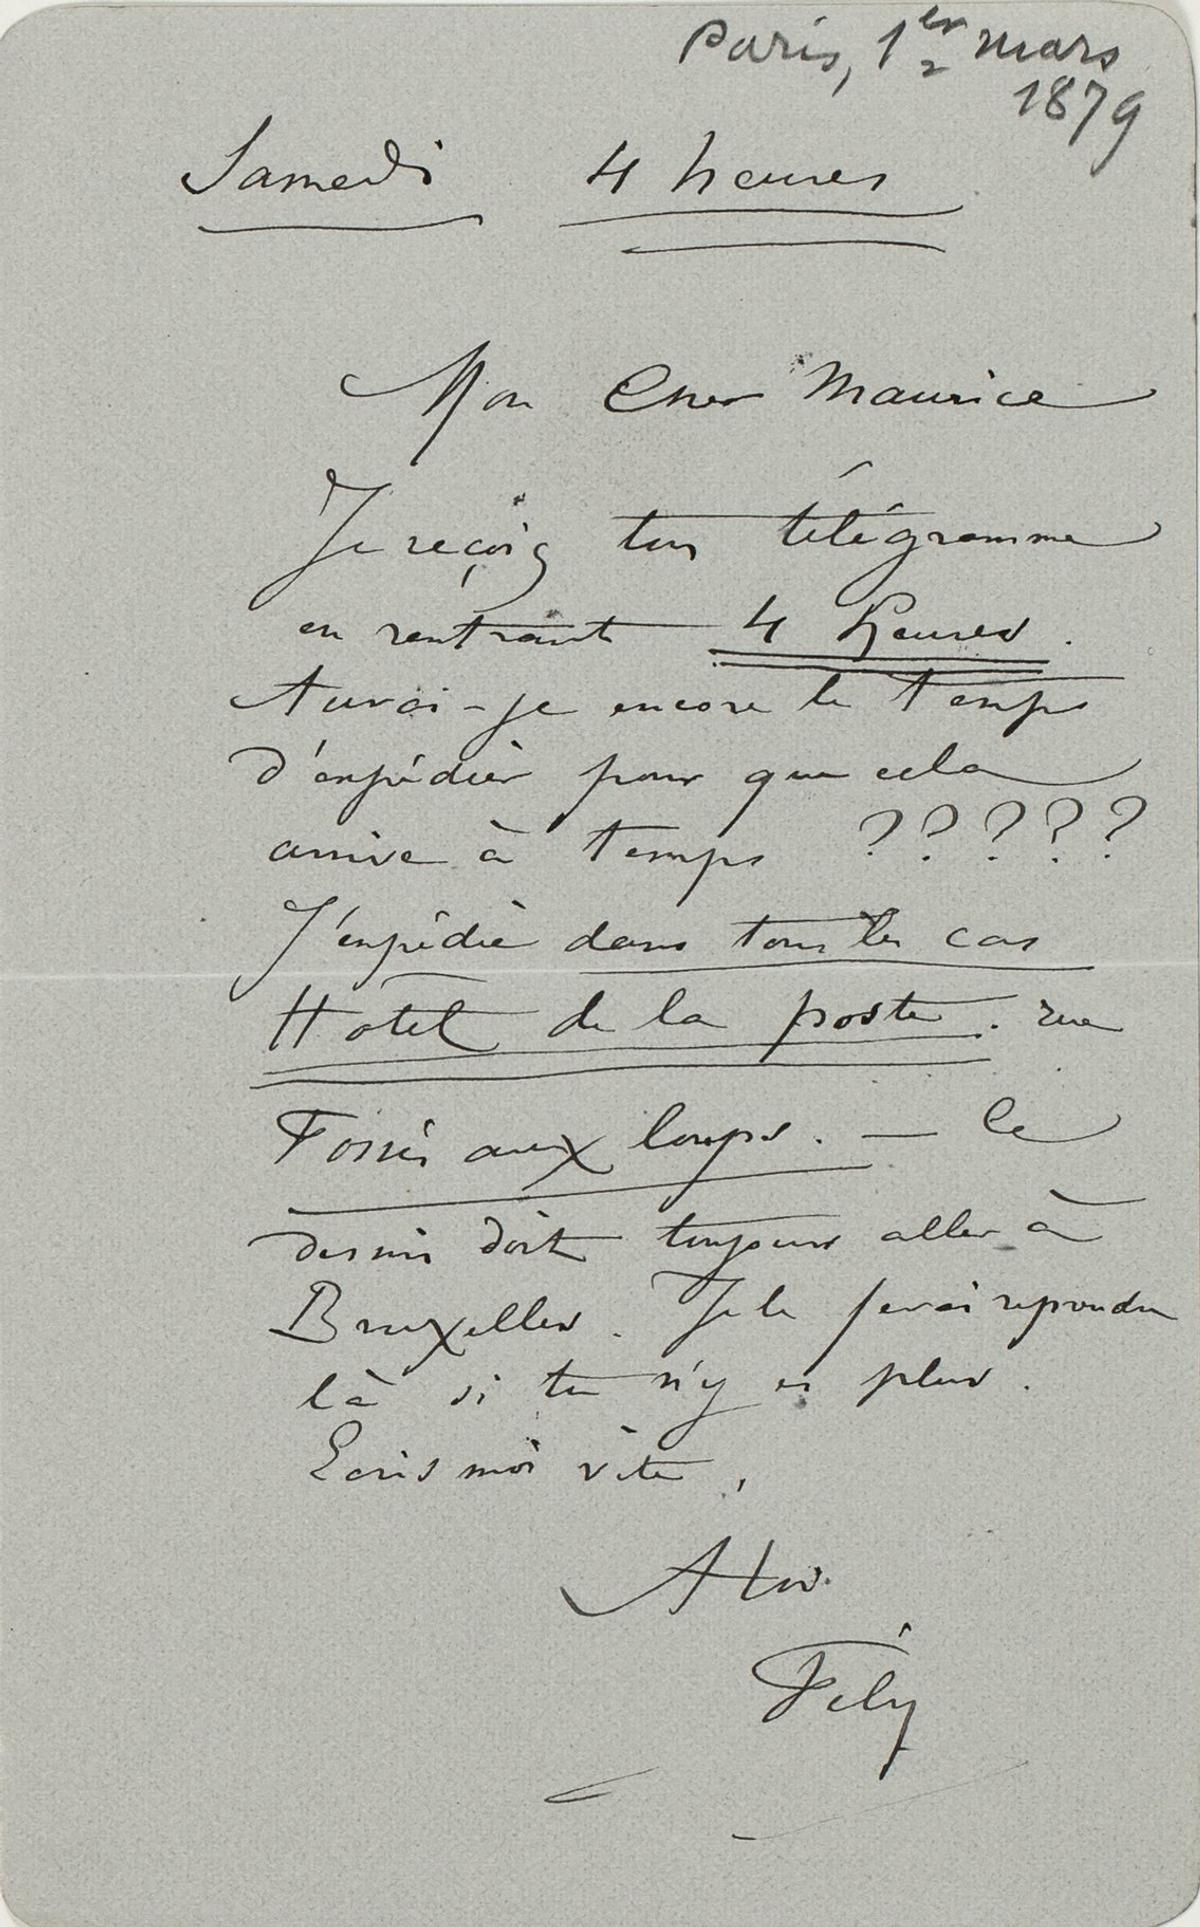 Paris, 1er mars
1879
Samedi 4 heures
Mon Cher Maurice
Je reçois ton télégramme
en rentrant 4 heures.
Aurai-je encore le temps
d'expédier pour que cela
arrive à temps ?????
J'expédie dans tous les cas
Hotel de la poste. rue
Fossés aux loups. — Ce
dessin doit toujours aller à
Bruxelles. Je le ferai reprendre
là si tu n'y es plus.
Ecris moi vite,
A toi.
Fély